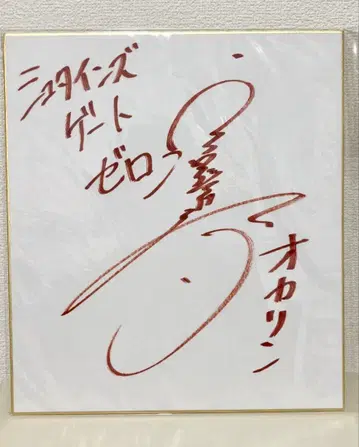 シュタインズ
ゲート
ゼロ
オカリン